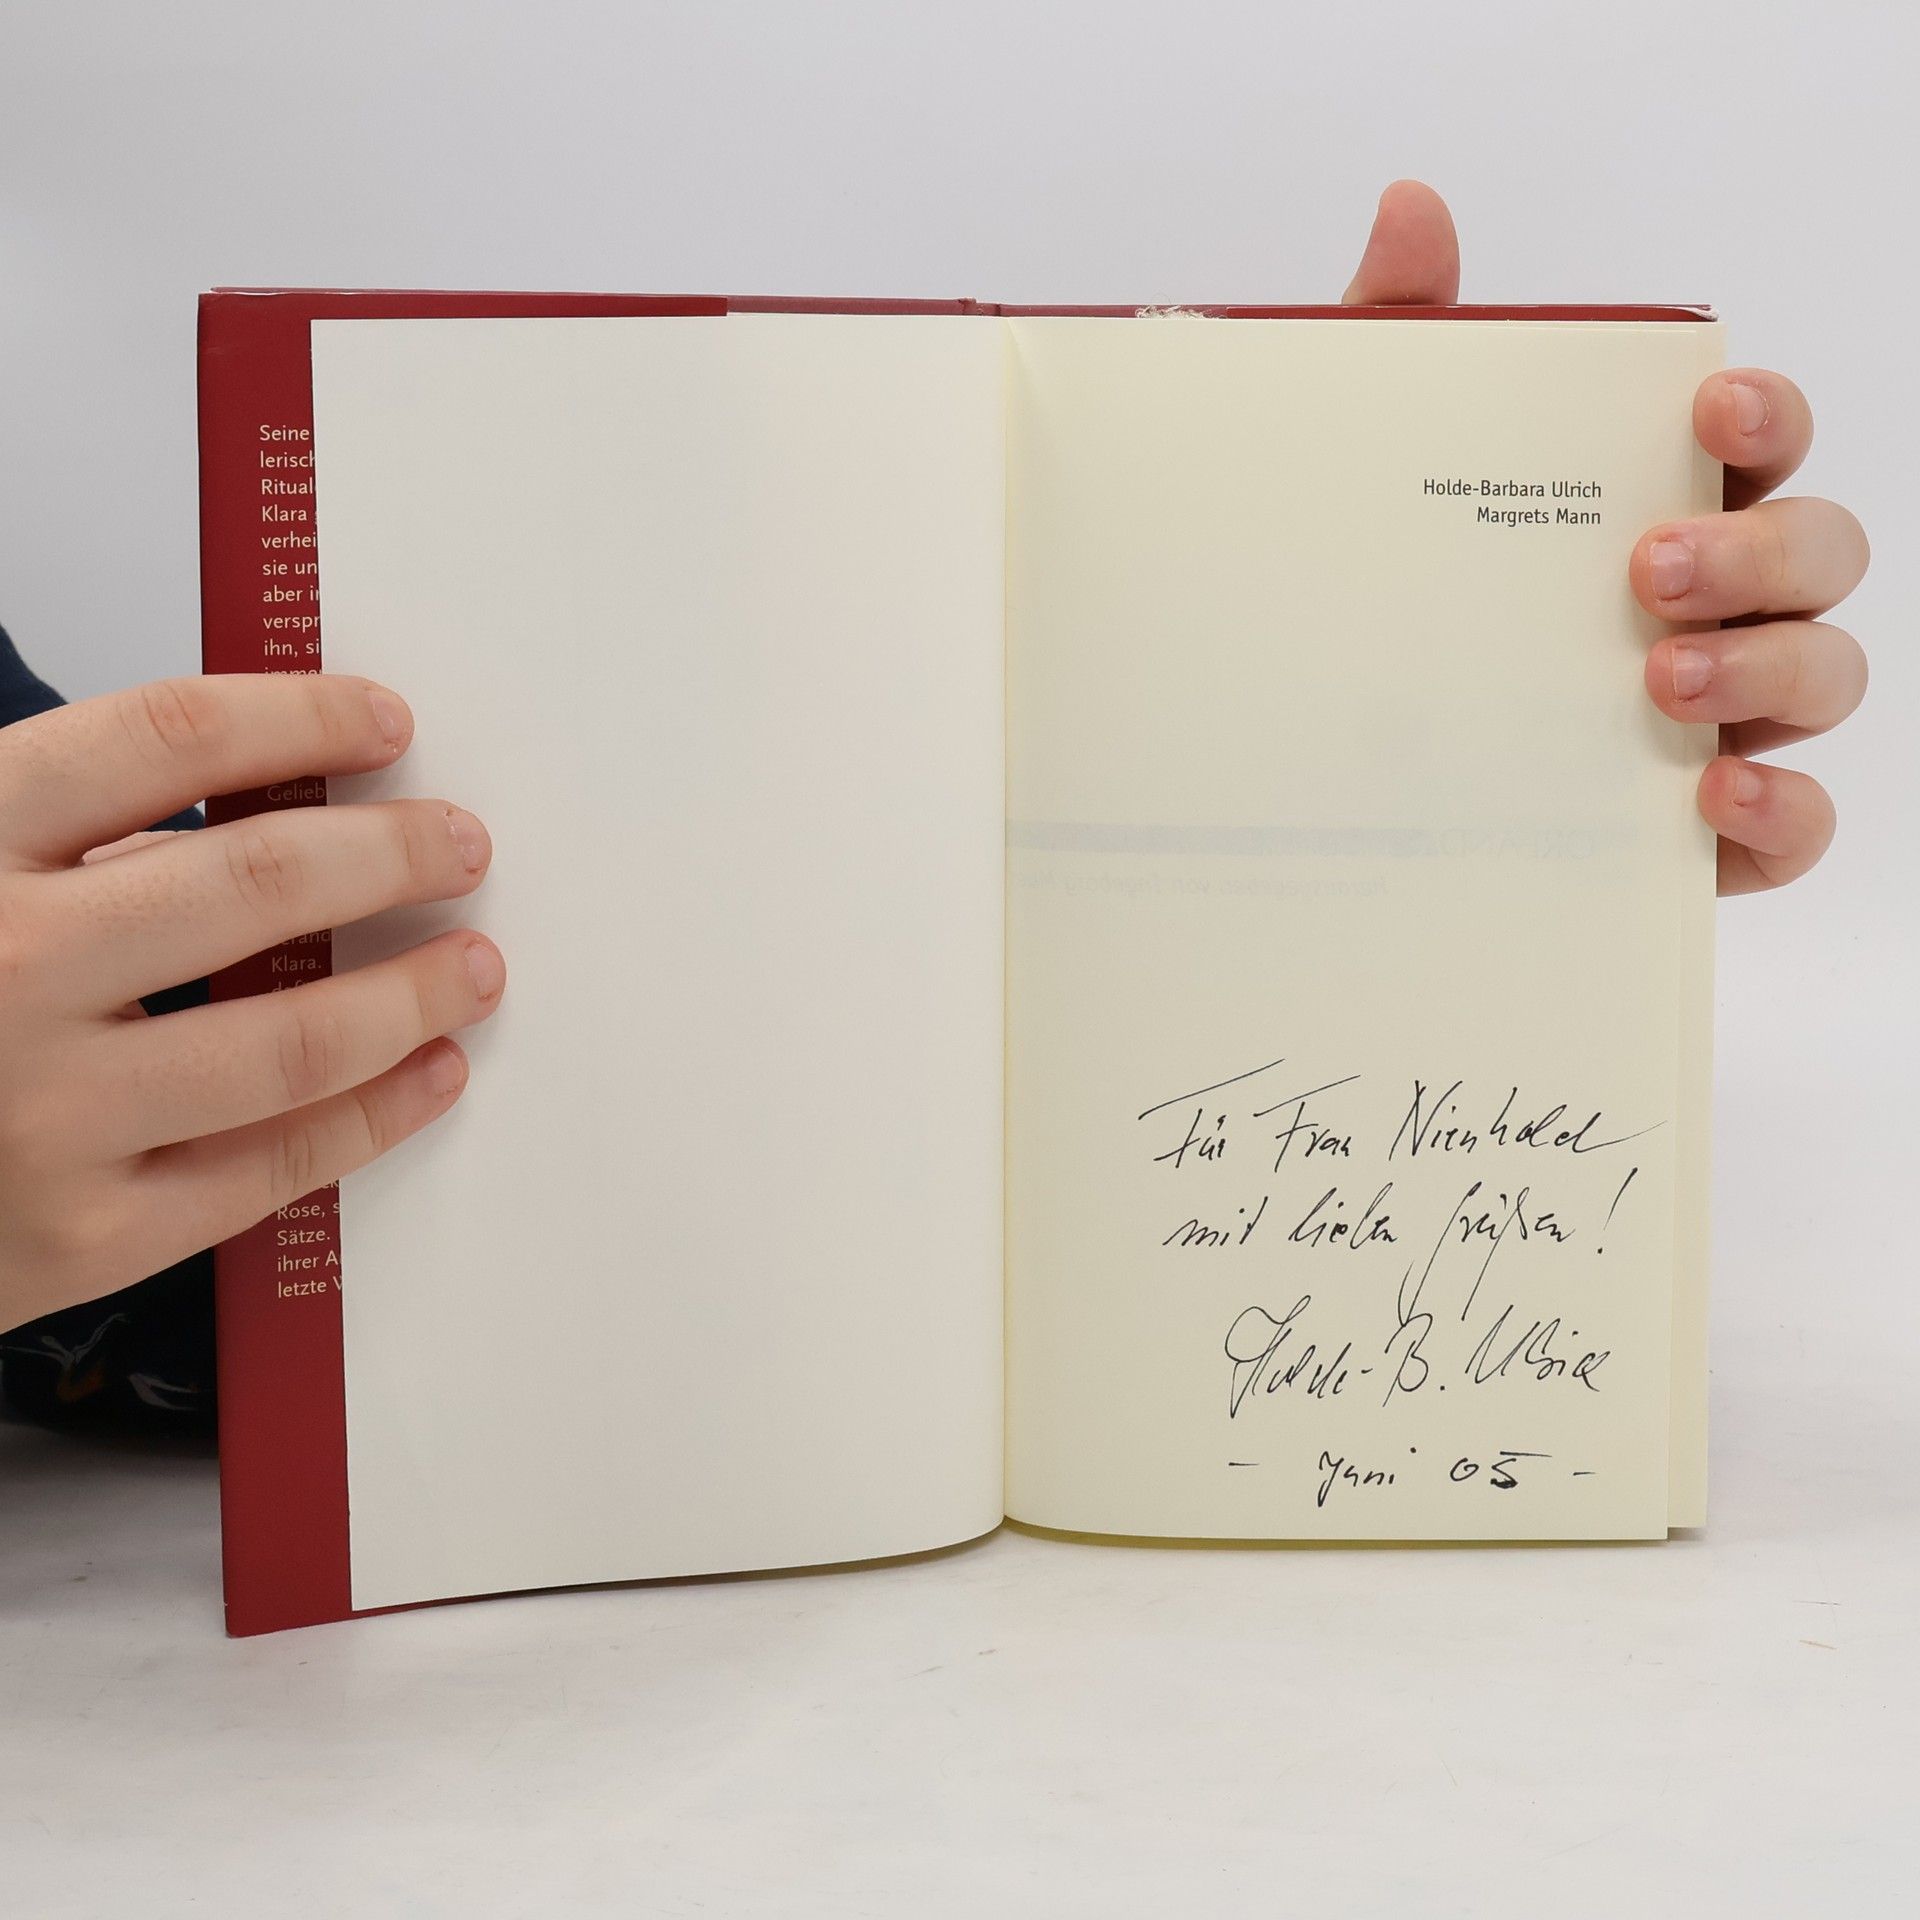 Seine
lerisch
Ritual
Klara
verhei
sie un
aber i
verspr
ihn, si
immer
Gelieb
Klara.
Rose, s
Sätze.
ihrer A
letzte V
Holde-Barbara Ulrich
Margrets Mann
Für Frau Nienhold
mit lieben Grüßen!
Holde-B. Ulrich
- Juni 05 -